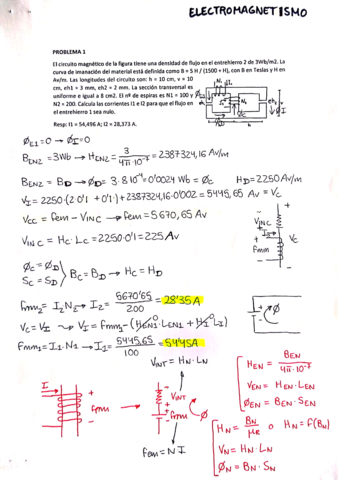 ELECTROMAGNETISMO
PROBLEMA 1
El circuito magnético de la figura tiene una densidad de flujo en el entrehierro 2 de 3Wb/m2. La
curva de imanación del material está definida como B = 5 H / (1500 + H), con B en Teslas y H en
Av/m. Las longitudes del circuito son: h = 10 cm, v = 10
cm, eh1 = 3 mm, eh2 = 2 mm. La sección transversal es
uniforme e igual a 8 cm2. El nº de espiras es N1 = 100 y
N2 = 200. Calcula las corrientes I1 e I2 para que el flujo en
el entrehierro 1 sea nulo.
Resp: I1 = 54,496 A; I2 = 28,373 A.
ΦE1=0 → ΦI=0
BEN2 = 3Wb → HEN2 = 3/4π·10⁻⁷ = 2387324,16 Av/m
BEN2 = BD → ΦD = 3·8·10⁻⁴ = 0'0024 Wb = ΦC HD = 2250 Av/m
VI = 2250·(2·0'1 + 0'1) + 2387324,16·0'002 = 5445,65 Av = VC
VCC = fem - VINC → fem = 5670,65 Av
VINC = HC·LC = 2250·0'1 = 225 Av
VINC
I2
fmm
VC
ΦC = ΦD
SC = SD } BC = BD → HC = HD
fmm2 = I2N2 → I2 = 5670'65/200 = 28'35A
VC = VI → VI = fmm1 - (HEN1·LEN1 + HI·LI)
Fmm1 = I1·N1 → I1 = 5445.65/100 = 54'45A
VINT = HN·LN
I
fmm
VINT
fmm
Φ
fem = N I
HEN = BEN/4π·10⁻⁷
VEN = HEN·LEN
ΦEN = BEN·SEN
HN = BN/μR o HN = f(BN)
VN = HN·LN
ΦN = BN·SN